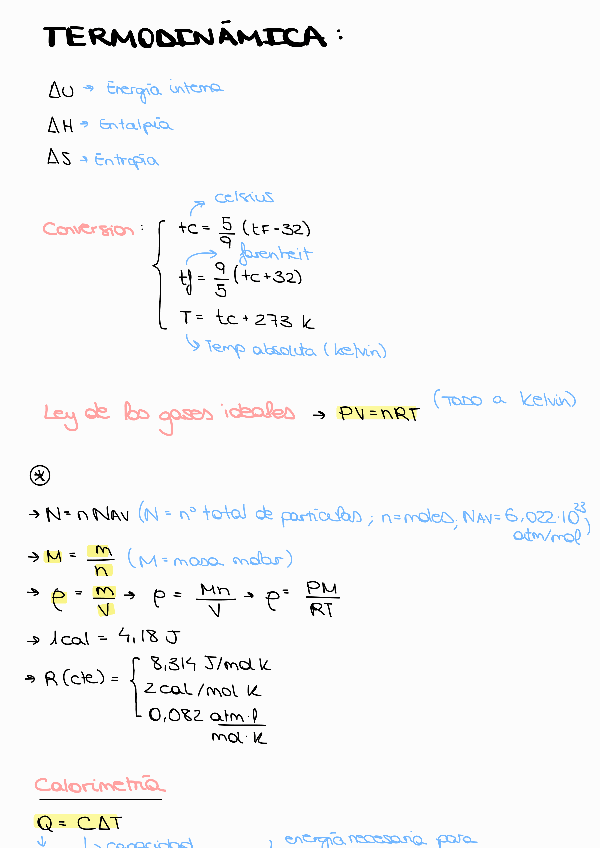 TERMODINÁMICA:
ΔU → Energía interna
ΔH → Entalpía
ΔS → Entropía
celsius
Conversion: tc = 5/9 (tF-32)
farenheit
tf = 9/5 (tc+32)
T = tc + 273 K
Temp absoluta (kelvin)
Ley de los gases ideales → PV=nRT (TODO a Kelvin)
*
→ N = n NAV (N = nº total de partículas ; n=moles; NAV=6,022·10²³ atm/mol)
→ M = m/n (M = masa molar)
→ ρ = m/V → ρ = Mn/V → ρ = PM/RT
→ 1cal = 4,18 J
→ R (cte) = 8,314 J/mol K
2 cal/mol K
0,082 atm·l/mol·K
Calorimetría
Q = CΔT
capacidad , energía necesaria para